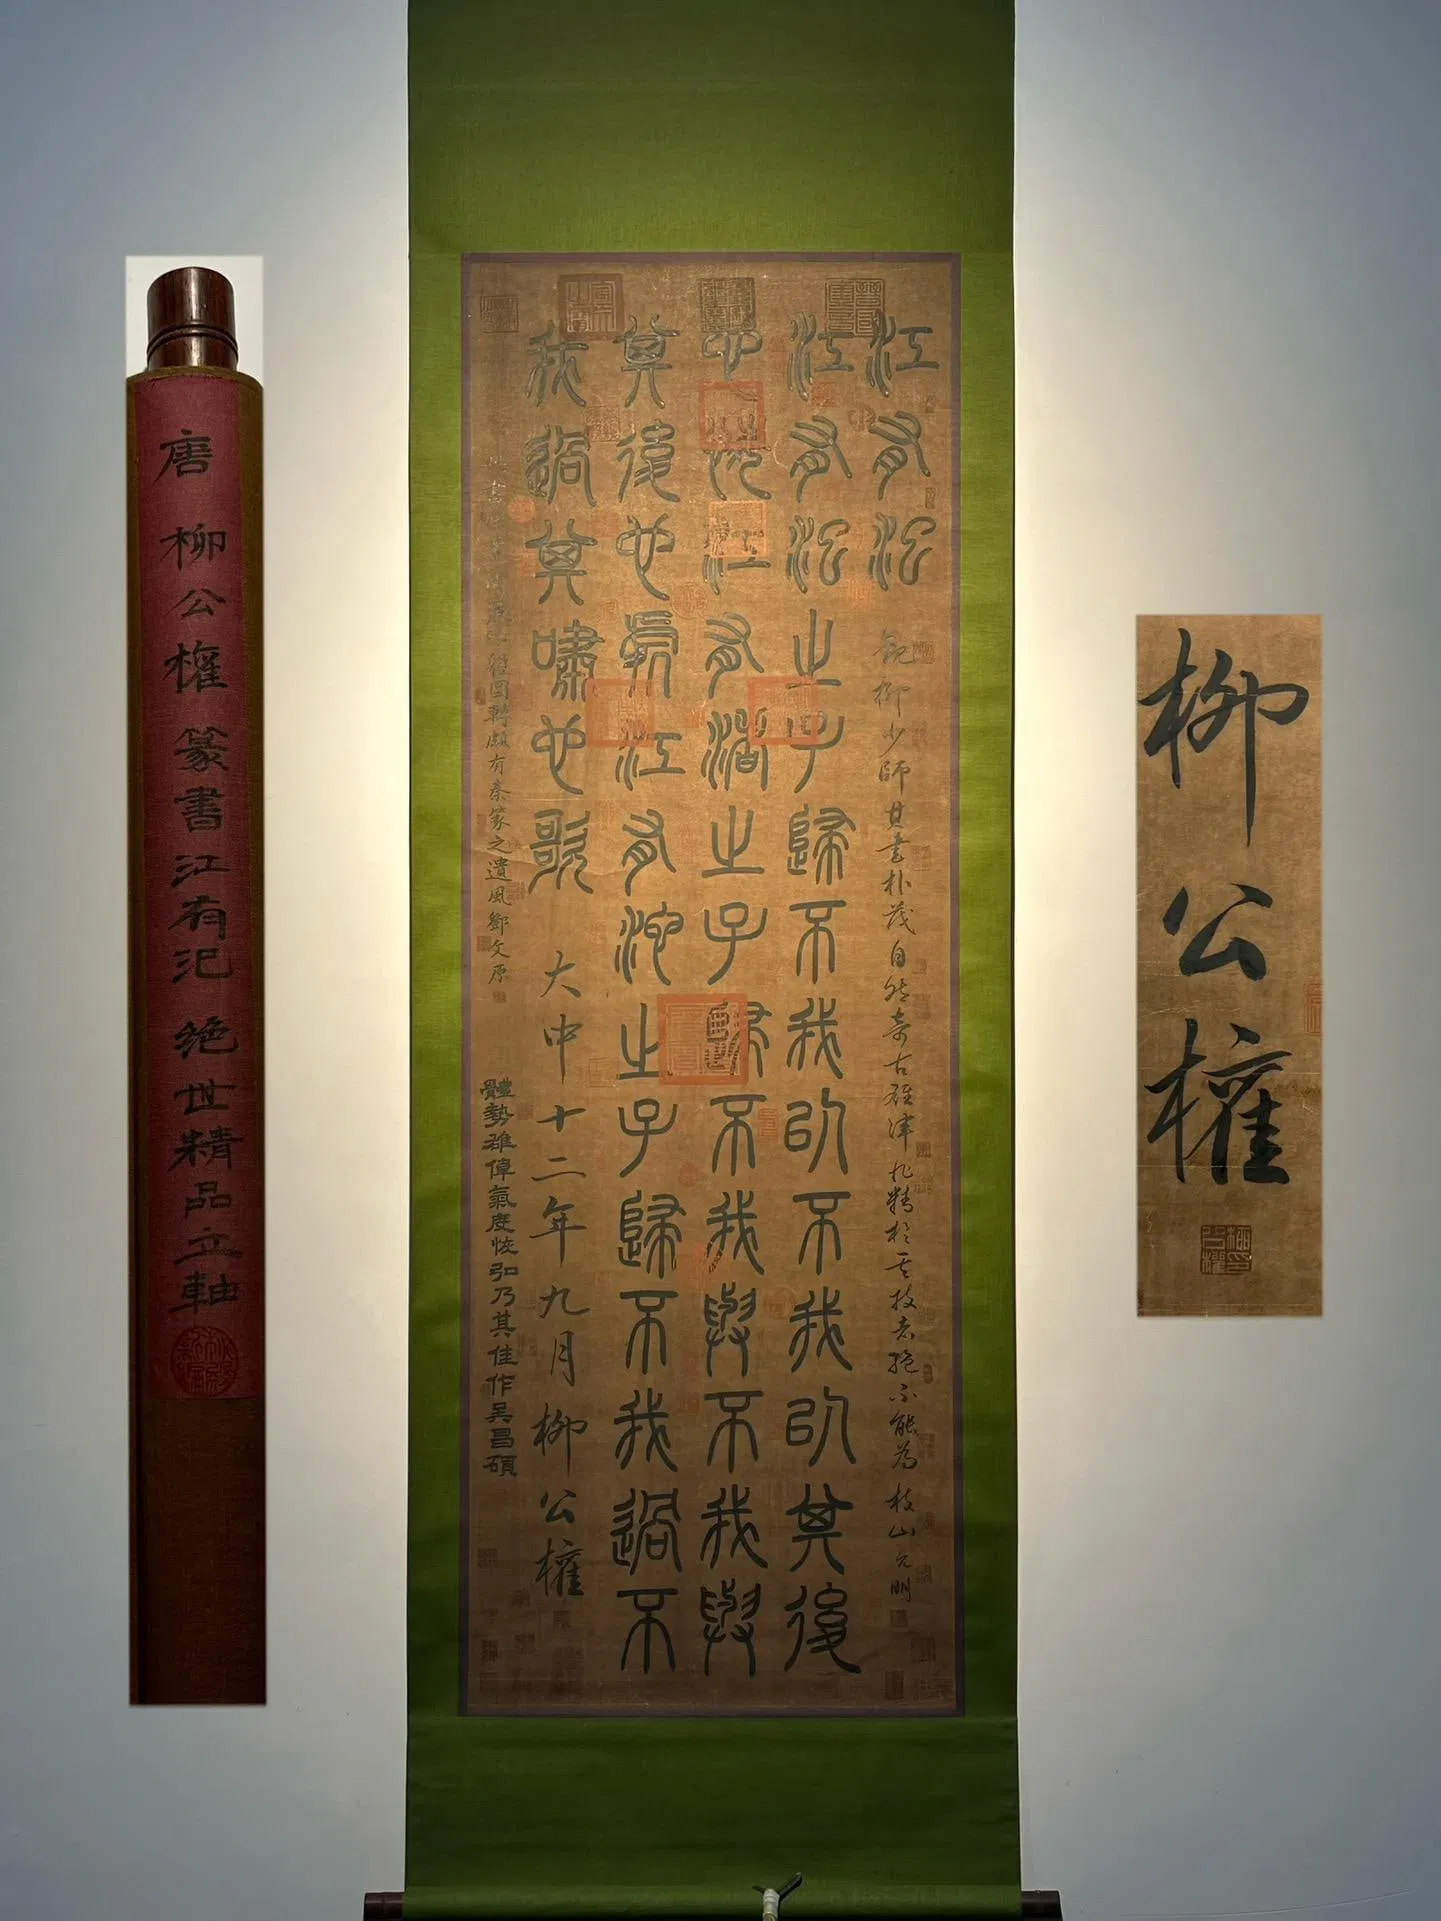 柳公權
江有汜
觀柳少師其書朴茂自然奇古雄渾非精於其技者絕不能為枝山允明
江有汜之子歸不我以不我以其後
也悔江有渚之子歸不我與不我與
其後也處江有沱之子歸不我過不
我過其嘯也歌
大中十二年九月柳公權
圓轉頗有秦篆之遺風鄧文原
體勢雄偉氣度恢弘乃其佳作吳昌碩
唐柳公權篆書江有汜絕世精品立軸